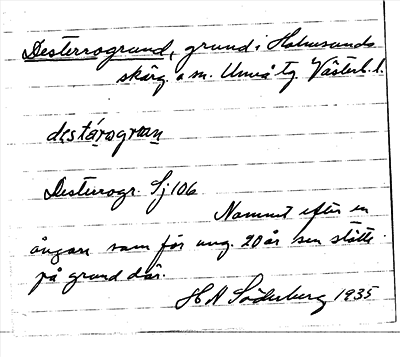 Desterrogrund, grund i Holmsunds
skärg. o sn. Umeå tg. Västerb. l.
destárogrøn
Desterrogr. Sj 106
Namnet efter en
ångare som för ung. 20 år sen stötte
på grund där.
H A Söderberg 1935